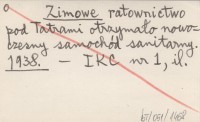 o Zimowe ratownictwo
pod Tatrami otrzymało nowo-
czesny samochód sanitarny.
1938. – IKC nr 1, il.